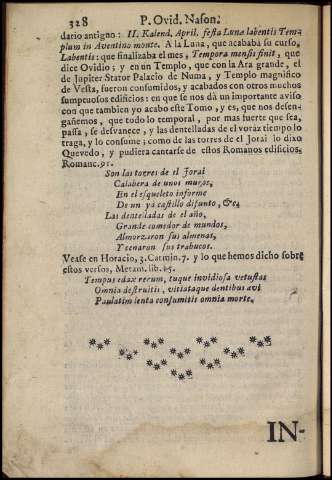 328 P. Ovid. Nason.
dario antiguo: II. Kalend, April. festa Luna labentis Tem-
plum in Aventino monte. A la Luna, que acababa su curso,
Labentis: que finalizaba el mes, Tempora mensis finit, que
dice Ovidio; y en un Templo, que con la Ara grande, el
de Jupiter Stator Palacio de Numa, y Templo magnifico
de Vesta, fueron consumidos, y acabados con otros muchos
sumptuosos edificios: en que se nos dà un importante aviso
con que tambien yo acabo este Tomo, y es, que nos desen-
gañemos, que todo lo temporal, por mas fuerte que sea,
passa, se desvanece, y las dentelladas de el voràz tiempo lo
traga, y lo consume; como de las torres de el Jorai lo dixo
Quevedo, y pudiera cantarse de estos Romanos edificios,
Romanc. 91.
Son las torres de el Jorai
Calabera de unos muros,
En el esqueleto informe
De un yà castillo difunto, &c.
Las dentelladas de el año,
Grande comedor de mundos,
Almorzaron sus almenas,
Y cenaron sus trabucos.
Vease en Horacio, 3. Carmin. 7. y lo que hemos dicho sobre
estos versos, Metam. lib. 15.
Tempus edax rerum, tuque invidiosa vetustas
Omnia destruitis, vitiataque dentibus ævi
Paulatim lenta consumitis omnia morte.
IN-